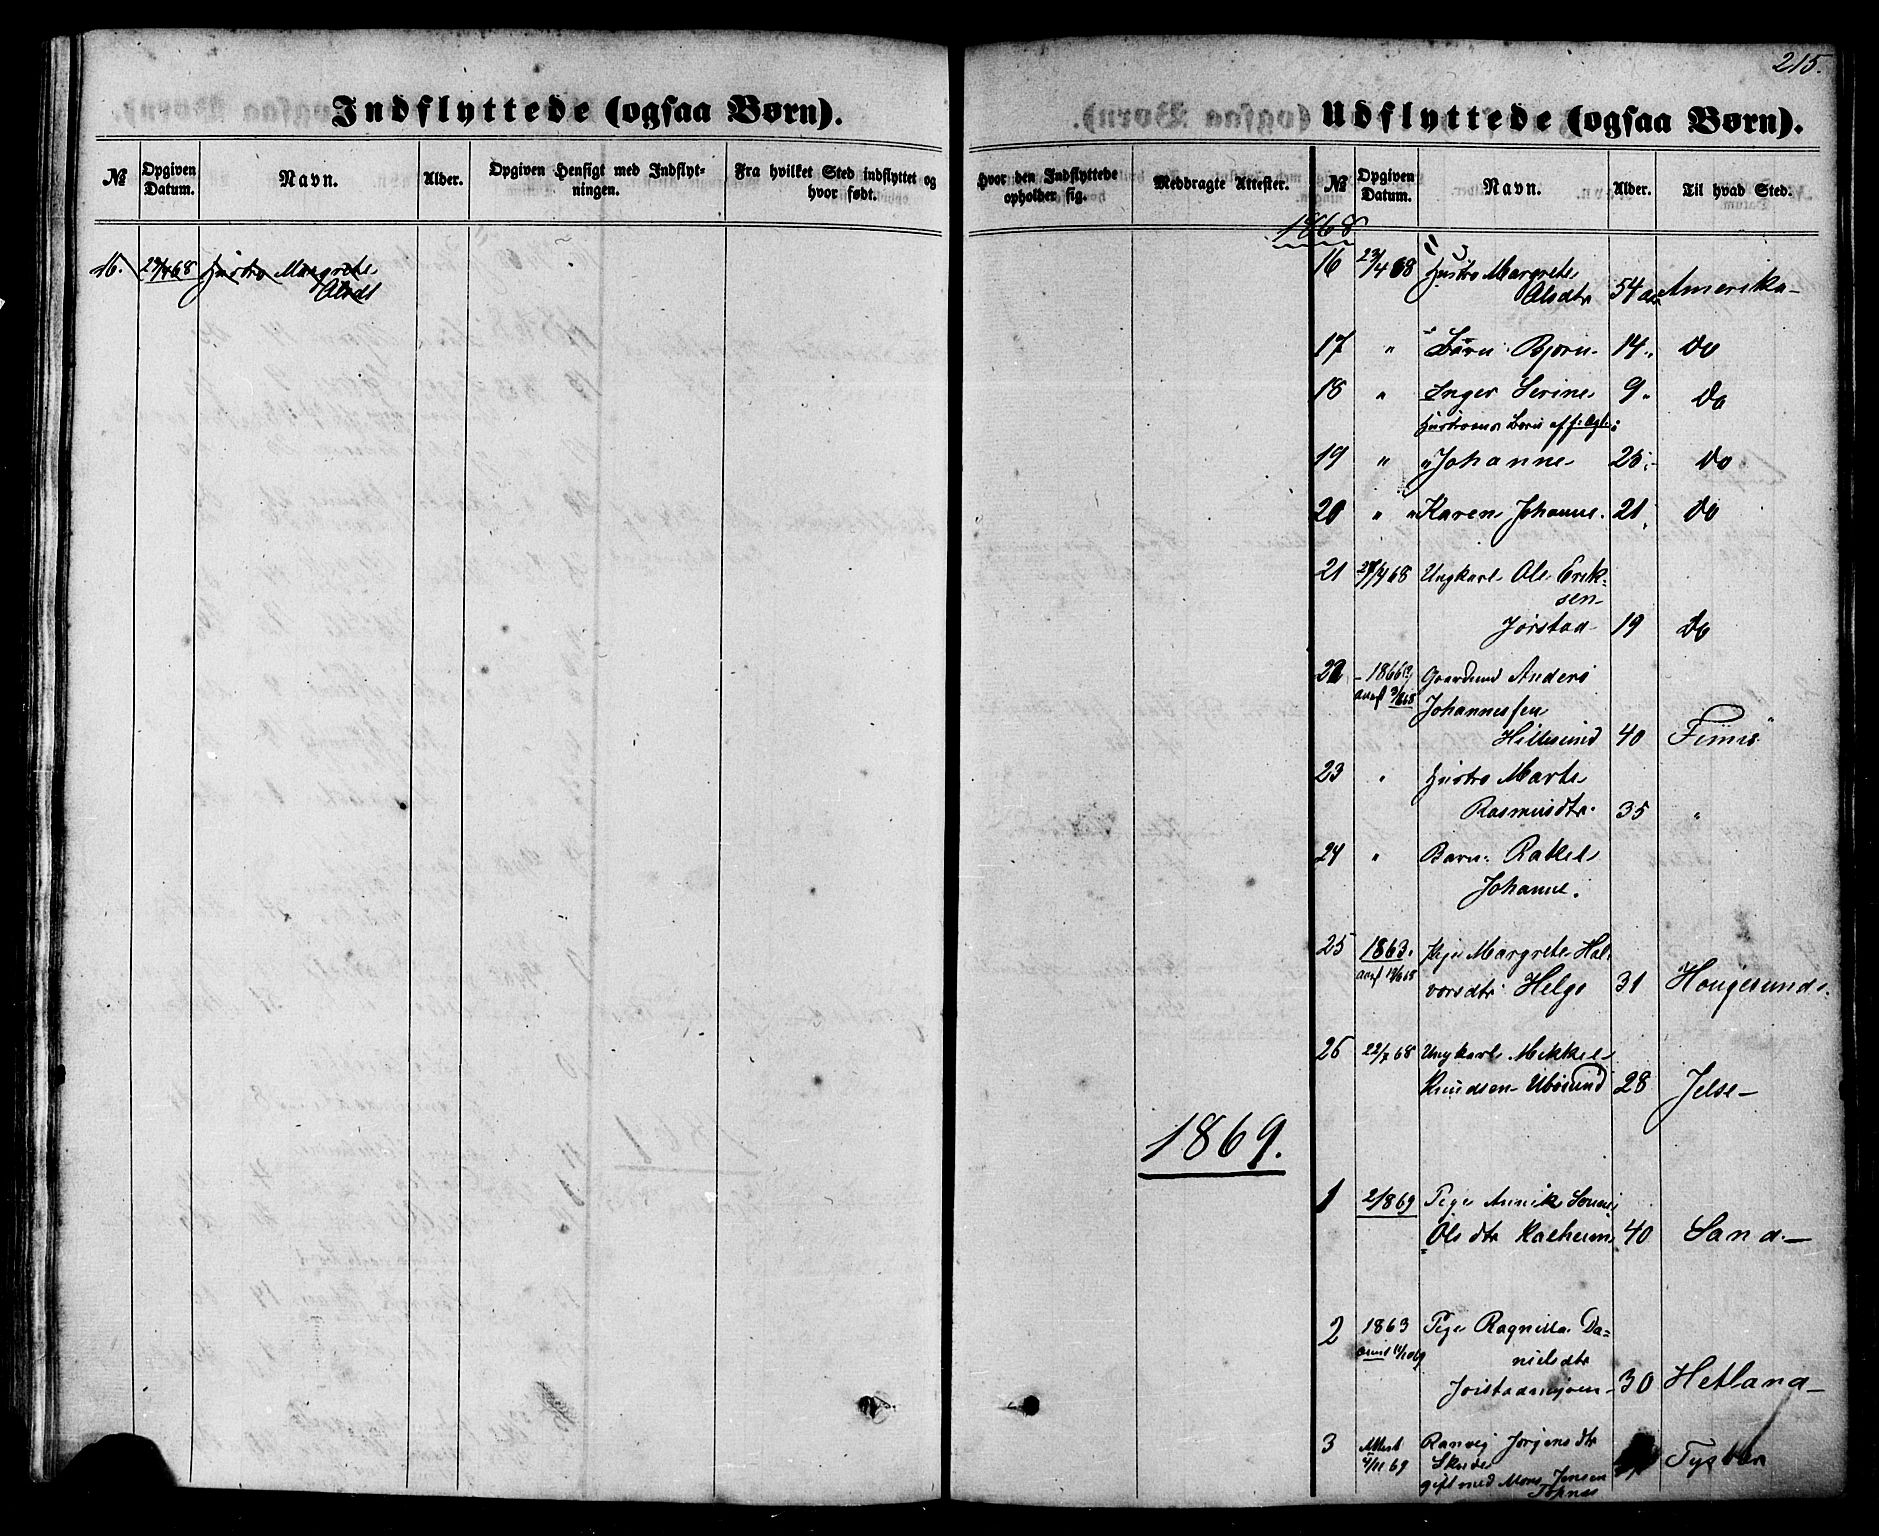 215.
Indflyttede (ogsaa Børn).
№ Opgiven Datum. Navn. Alder. Opgiven Hensigt med Indflytningen. Fra hvilket Sted indflyttet og hvor født.
16. 23/4 68 Hustro Margrete
Olsdt
Udflyttede (ogsaa Børn).
Hvor den Indflyttede opholder sig. Meddragte Attester. № Opgiven Datum. Navn. Alder. Til hvad Sted.
1868
16 23/4 68 Hustro Margrete
Olsdtr 54 Amerika
17 " Børn: Bjørn 14 " Do
18 " Inger Serine 9 " Do
Hustroens Børn af
19 " " Johanne 25 Do
20 " " Karen Johanne. 21 Do
21 /4 68 Ungkarl Ole Erik-
sen
Jørstad 19 Do
22 1866 Gaardmd Anders
Johannesen
Hillesund 40 Finnø
23 " Hustro Marte
Rasmusdtr. 35 "
24 " Barn: Rakel
Johanne.
25 1863. Pige Margrete Hal-
vorsdtr Helgø 31 Hougesund
26 22/ 68 Ungkarl Mikkel
Knudsen 28 Jelse
1869.
1 2/8 69 Pige
Olsdtr 40 Sand
2 1863 Pige Ragnilla Da=
nielsdtr
30 Hetland
3 Attest /11 69 Ranvej Jørgensdtr
gift med Mons Jensen